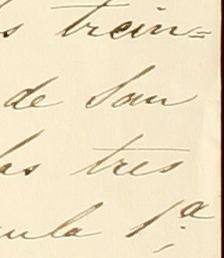 s trein=
de San
las tres
ula 1ª;